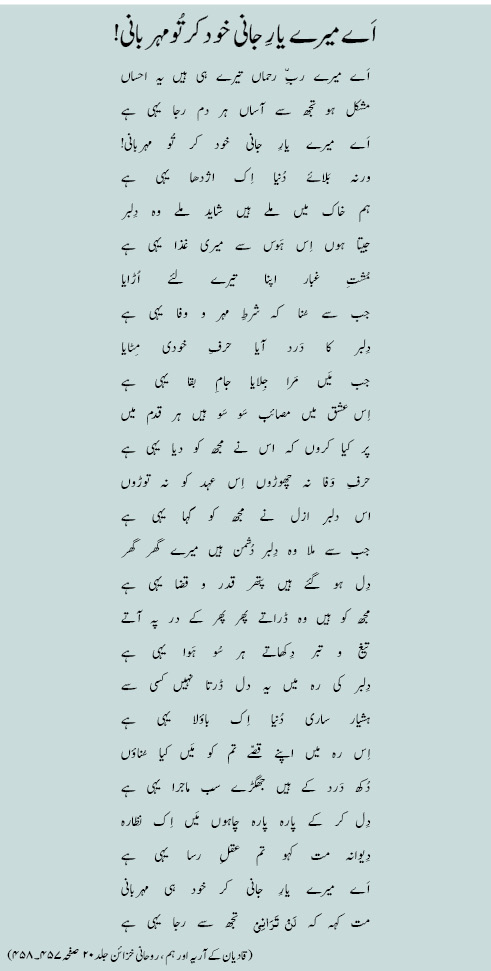 اَے میرے یارِ جانی خود کر تُو مہربانی!
اَے میرے ربِّ رحماں تیرے ہی ہیں یہ احساں
مشکل ہو تجھ سے آساں ہر دم رجا یہی ہے
اَے میرے یارِ جانی خود کر تُو مہربانی!
ورنہ بَلائے دُنیا اِک اژدھا یہی ہے
ہم خاک میں ملے ہیں شاید ملے وہ دِلبر
جیتا ہوں اِس ہَوس سے میری غذا یہی ہے
مُشتِ غبار اپنا تیرے لئے اُڑایا
جب سے سُنا کہ شرطِ مہر و وفا یہی ہے
دِلبر کا دَرد آیا حرفِ خودی مِٹایا
جب مَیں مَرا جِلایا جامِ بقا یہی ہے
اِس عشق میں مصائب سَو سَو ہیں ہر قدم میں
پر کیا کروں کہ اس نے مجھ کو دیا یہی ہے
حرفِ وَفا نہ چھوڑوں اِس عہد کو نہ توڑوں
اس دلبرِ ازل نے مجھ کو کہا یہی ہے
جب سے ملا وہ دِلبر دُشمن ہیں میرے گھر گھر
دِل ہو گئے ہیں پتھر قدر و قضا یہی ہے
مجھ کو ہیں وہ ڈراتے پھر پھر کے در پہ آتے
تیغ و تبر دِکھاتے ہر سُو ہَوا یہی ہے
دِلبر کی رہ میں یہ دل ڈرتا نہیں کسی سے
ہشیار ساری دُنیا اِک باؤلا یہی ہے
اِس رہ میں اپنے قصّے تم کو مَیں کیا سُناؤں
دُکھ دَرد کے ہیں جھگڑے سب ماجرا یہی ہے
دِل کر کے پارہ پارہ چاہوں مَیں اِک نظارہ
دِیوانہ مت کہو تم عقلِ رسا یہی ہے
اَے میرے یارِ جانی کر خود ہی مہربانی
مت کہہ کہ لَنْ تَرَانِیْ تجھ سے رجا یہی ہے
(قادیان کے آریہ اور ہم، روحانی خزائن جلد ۲۰ صفحہ ۴۵۷۔۴۵۸)